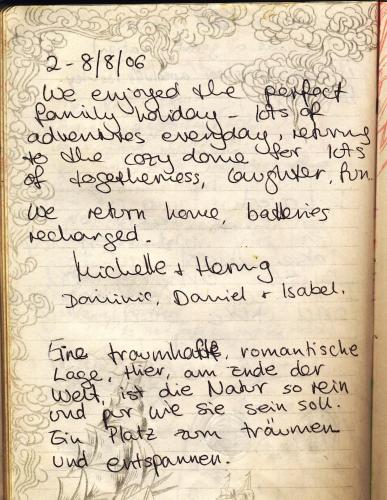 2-8/8/06
We enjoyed the perfect
family holiday - lots of
adventures everyday, returning
to the cozy dome for lots
of togetherness, laughter, fun.
We return home, batteries
recharged.
Michelle + Hennig
Dominic, Daniel + Isabel.
Eine traumhafte, romantische
Lage, Hier, am Ende der
Welt, ist die Natur so rein
und pur wie sie sein soll.
Ein Platz zum träumen
und entspannen.